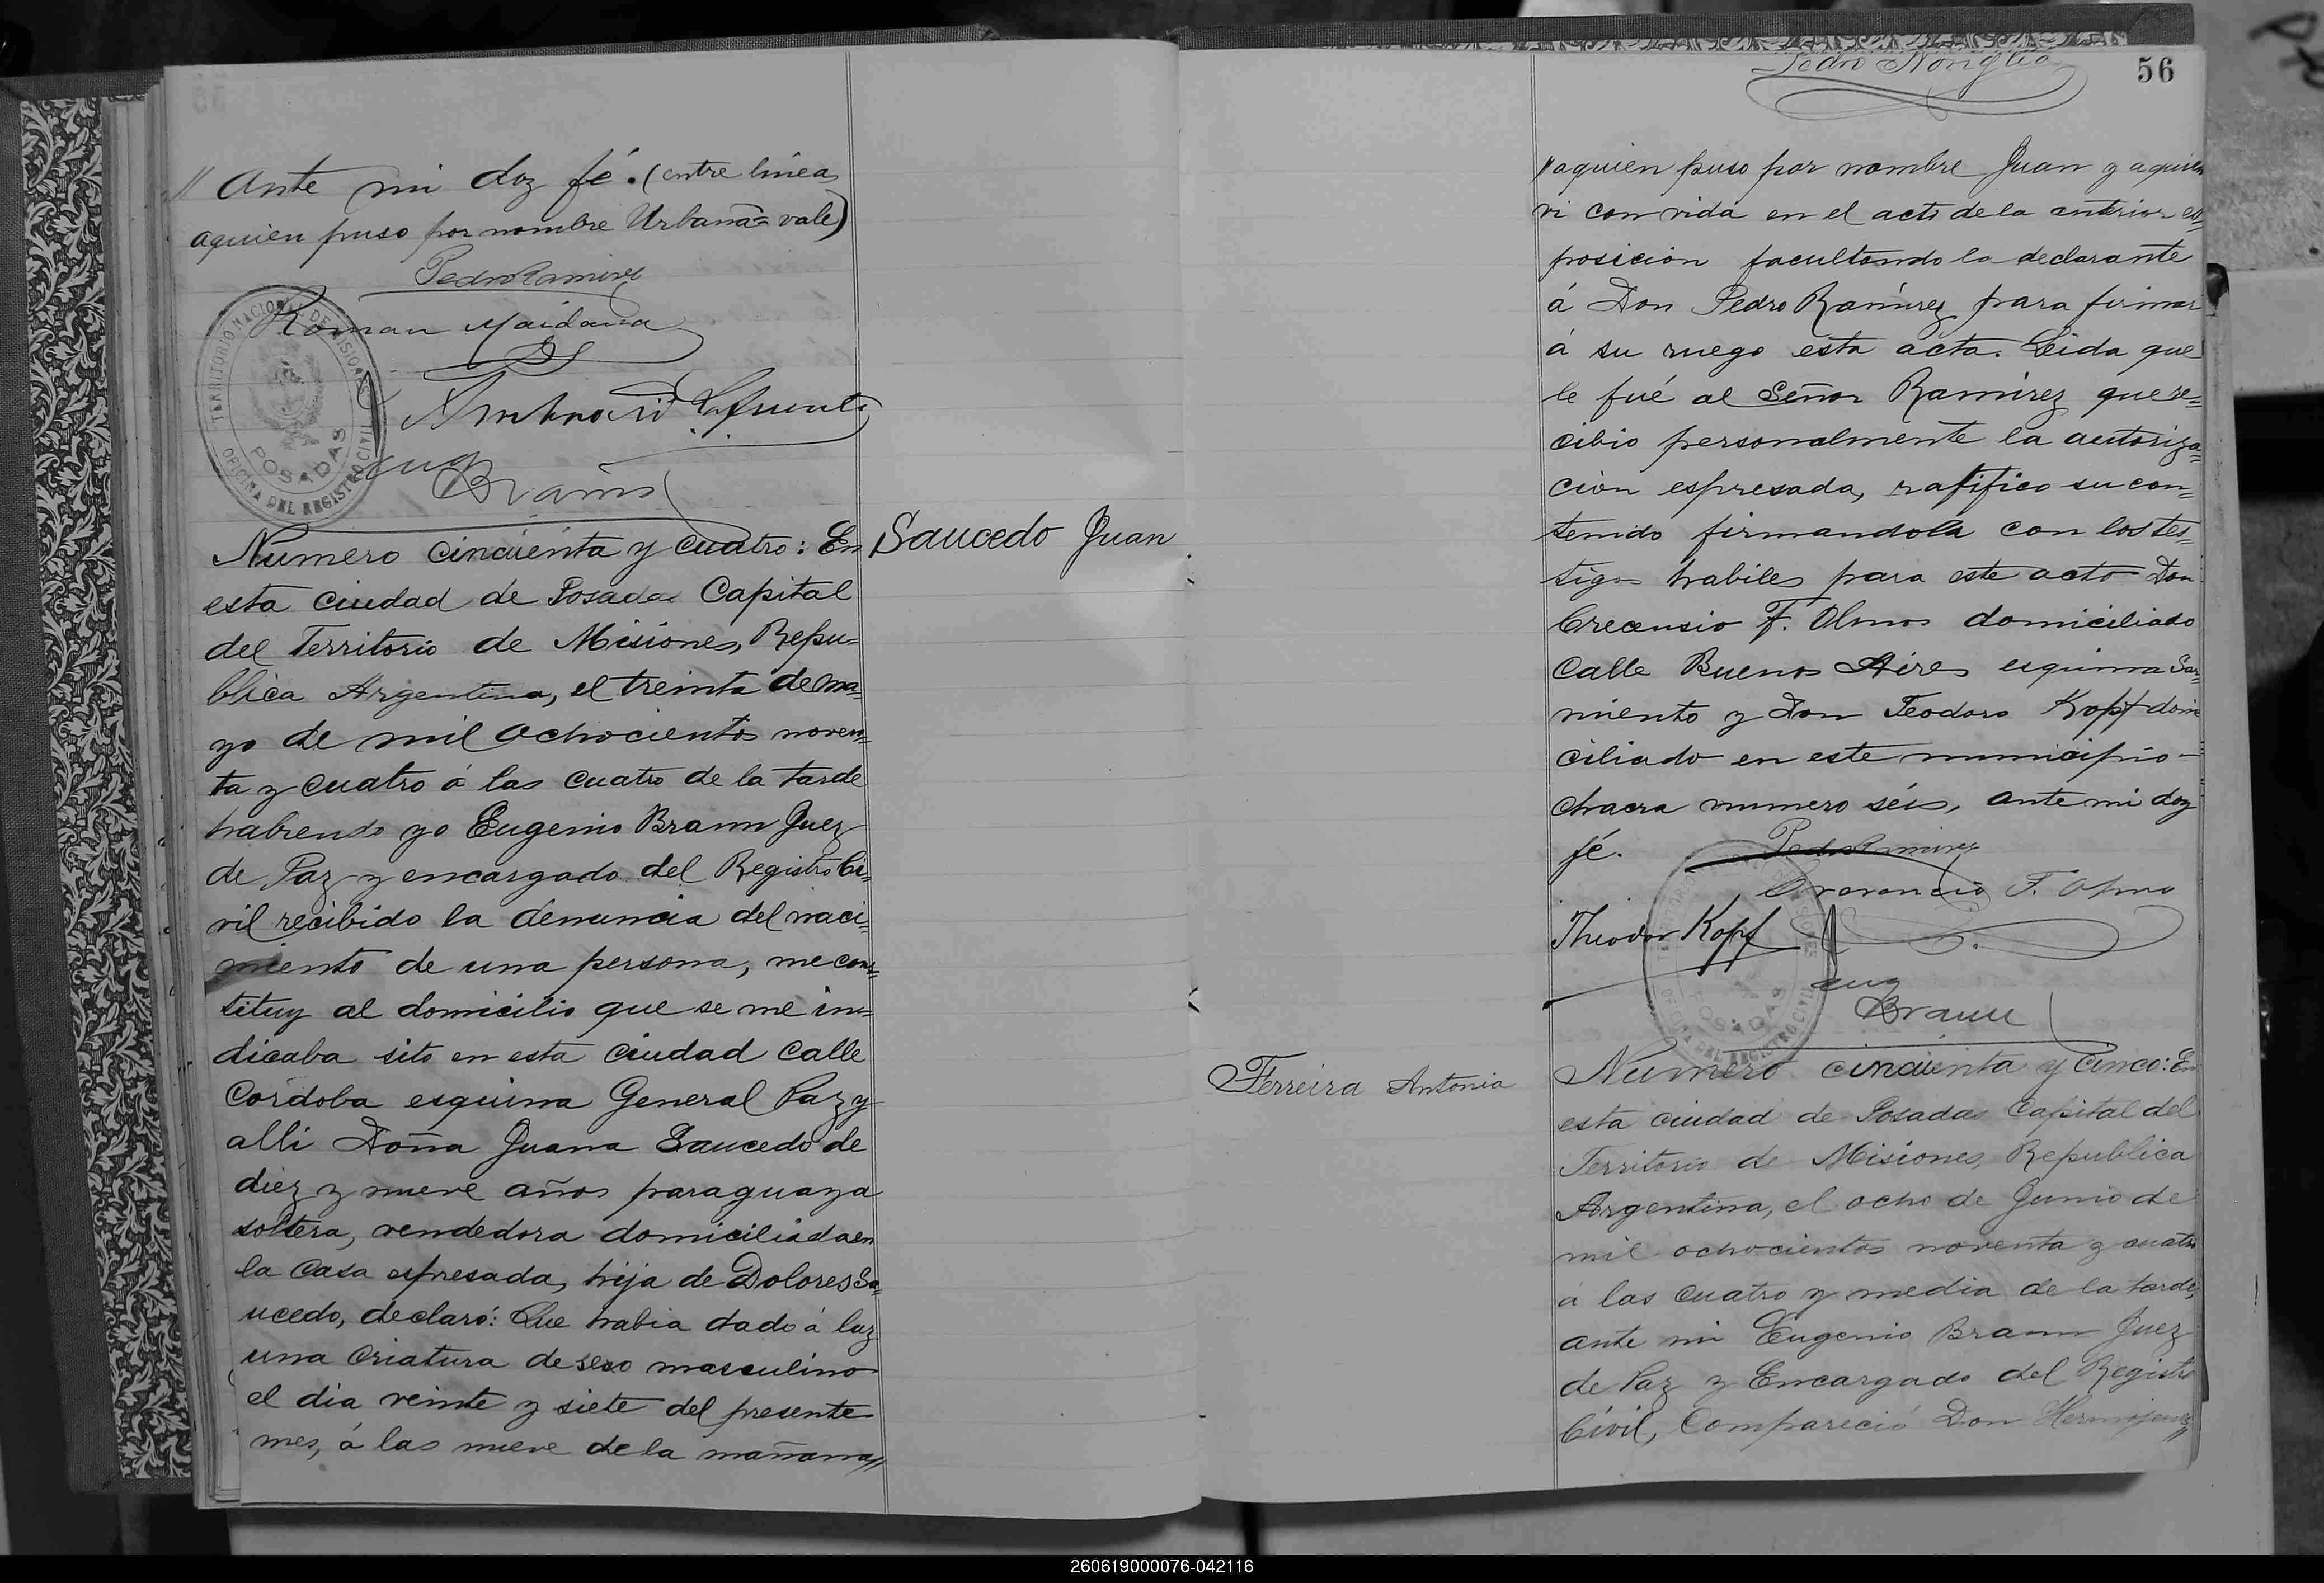 // Ante mi doy fé. (entre lineas
aquien puso por nombre Urbana = vale)
Pedro Ramirez
Roman Maidana
Lafuente
Eug
Braun
TERRITORIO NACIONAL DE MISIONES
POSADAS
OFICINA DEL REGISTRO CIVIL
Saucedo Juan
Numero cincuenta y cuatro: En
esta ciudad de Posadas Capital
del Territorio de Misiones, Repu=
blica Argentina, el treinta de ma=
yo de mil ochocientos noven=
ta y cuatro á las cuatro de la tarde
habiendo yo Eugenio Braun Juez
de Paz y encargado del Registro Ci=
vil recibido la denuncia del naci=
miento de una persona, me cons=
tituy al domicilio que se me in=
dicaba sito en esta ciudad calle
Córdoba esquina General Paz y
alli Doña Juana Saucedo de
diez y nueve años paraguaya
soltera, vendedora domiciliada en
la casa espresada, hija de Dolores Sa=
ucedo, declaró: Que habia dado á luz
una criatura de sexo masculino
el dia veinte y siete del presente
mes, á las nueve de la mañana//
56
Pedro
// aquien puso por nombre Juan y aquien
vi con vida en el acto de la anterior es=
posicion facultando la declarante
á Don Pedro Ramirez para firmar
á su ruego esta acta. Leida que
le fué al Señor Ramirez que re=
cibio personalmente la autoriza=
cion espresada, ratifico su con=
tenido firmandola con los tes=
tigos habiles para este acto Don
Crecensio F. Olmos domiciliado
Calle Buenos Aires esquina Sar=
miento y Don Teodoro Kopf domi
ciliado en este municipio -
chacra numero séis, ante mi doy
fé.
Pedro Ramirez
F. Olmo
Theodor Kopf
Eug
Braun
POSADAS
DEL REGISTRO CIVIL
Ferreira Antonia
Numero cincuenta y cinco: En
esta ciudad de Posadas Capital del
Territorio de Misiones, Republica
Argentina, el ocho de Junio de
mil ochocientos noventa y cuatro
á las cuatro y media de la tarde,
ante mi Eugenio Braun Juez
de Paz y Encargado del Registro
Civil, Compareció Don
260619000076-042116